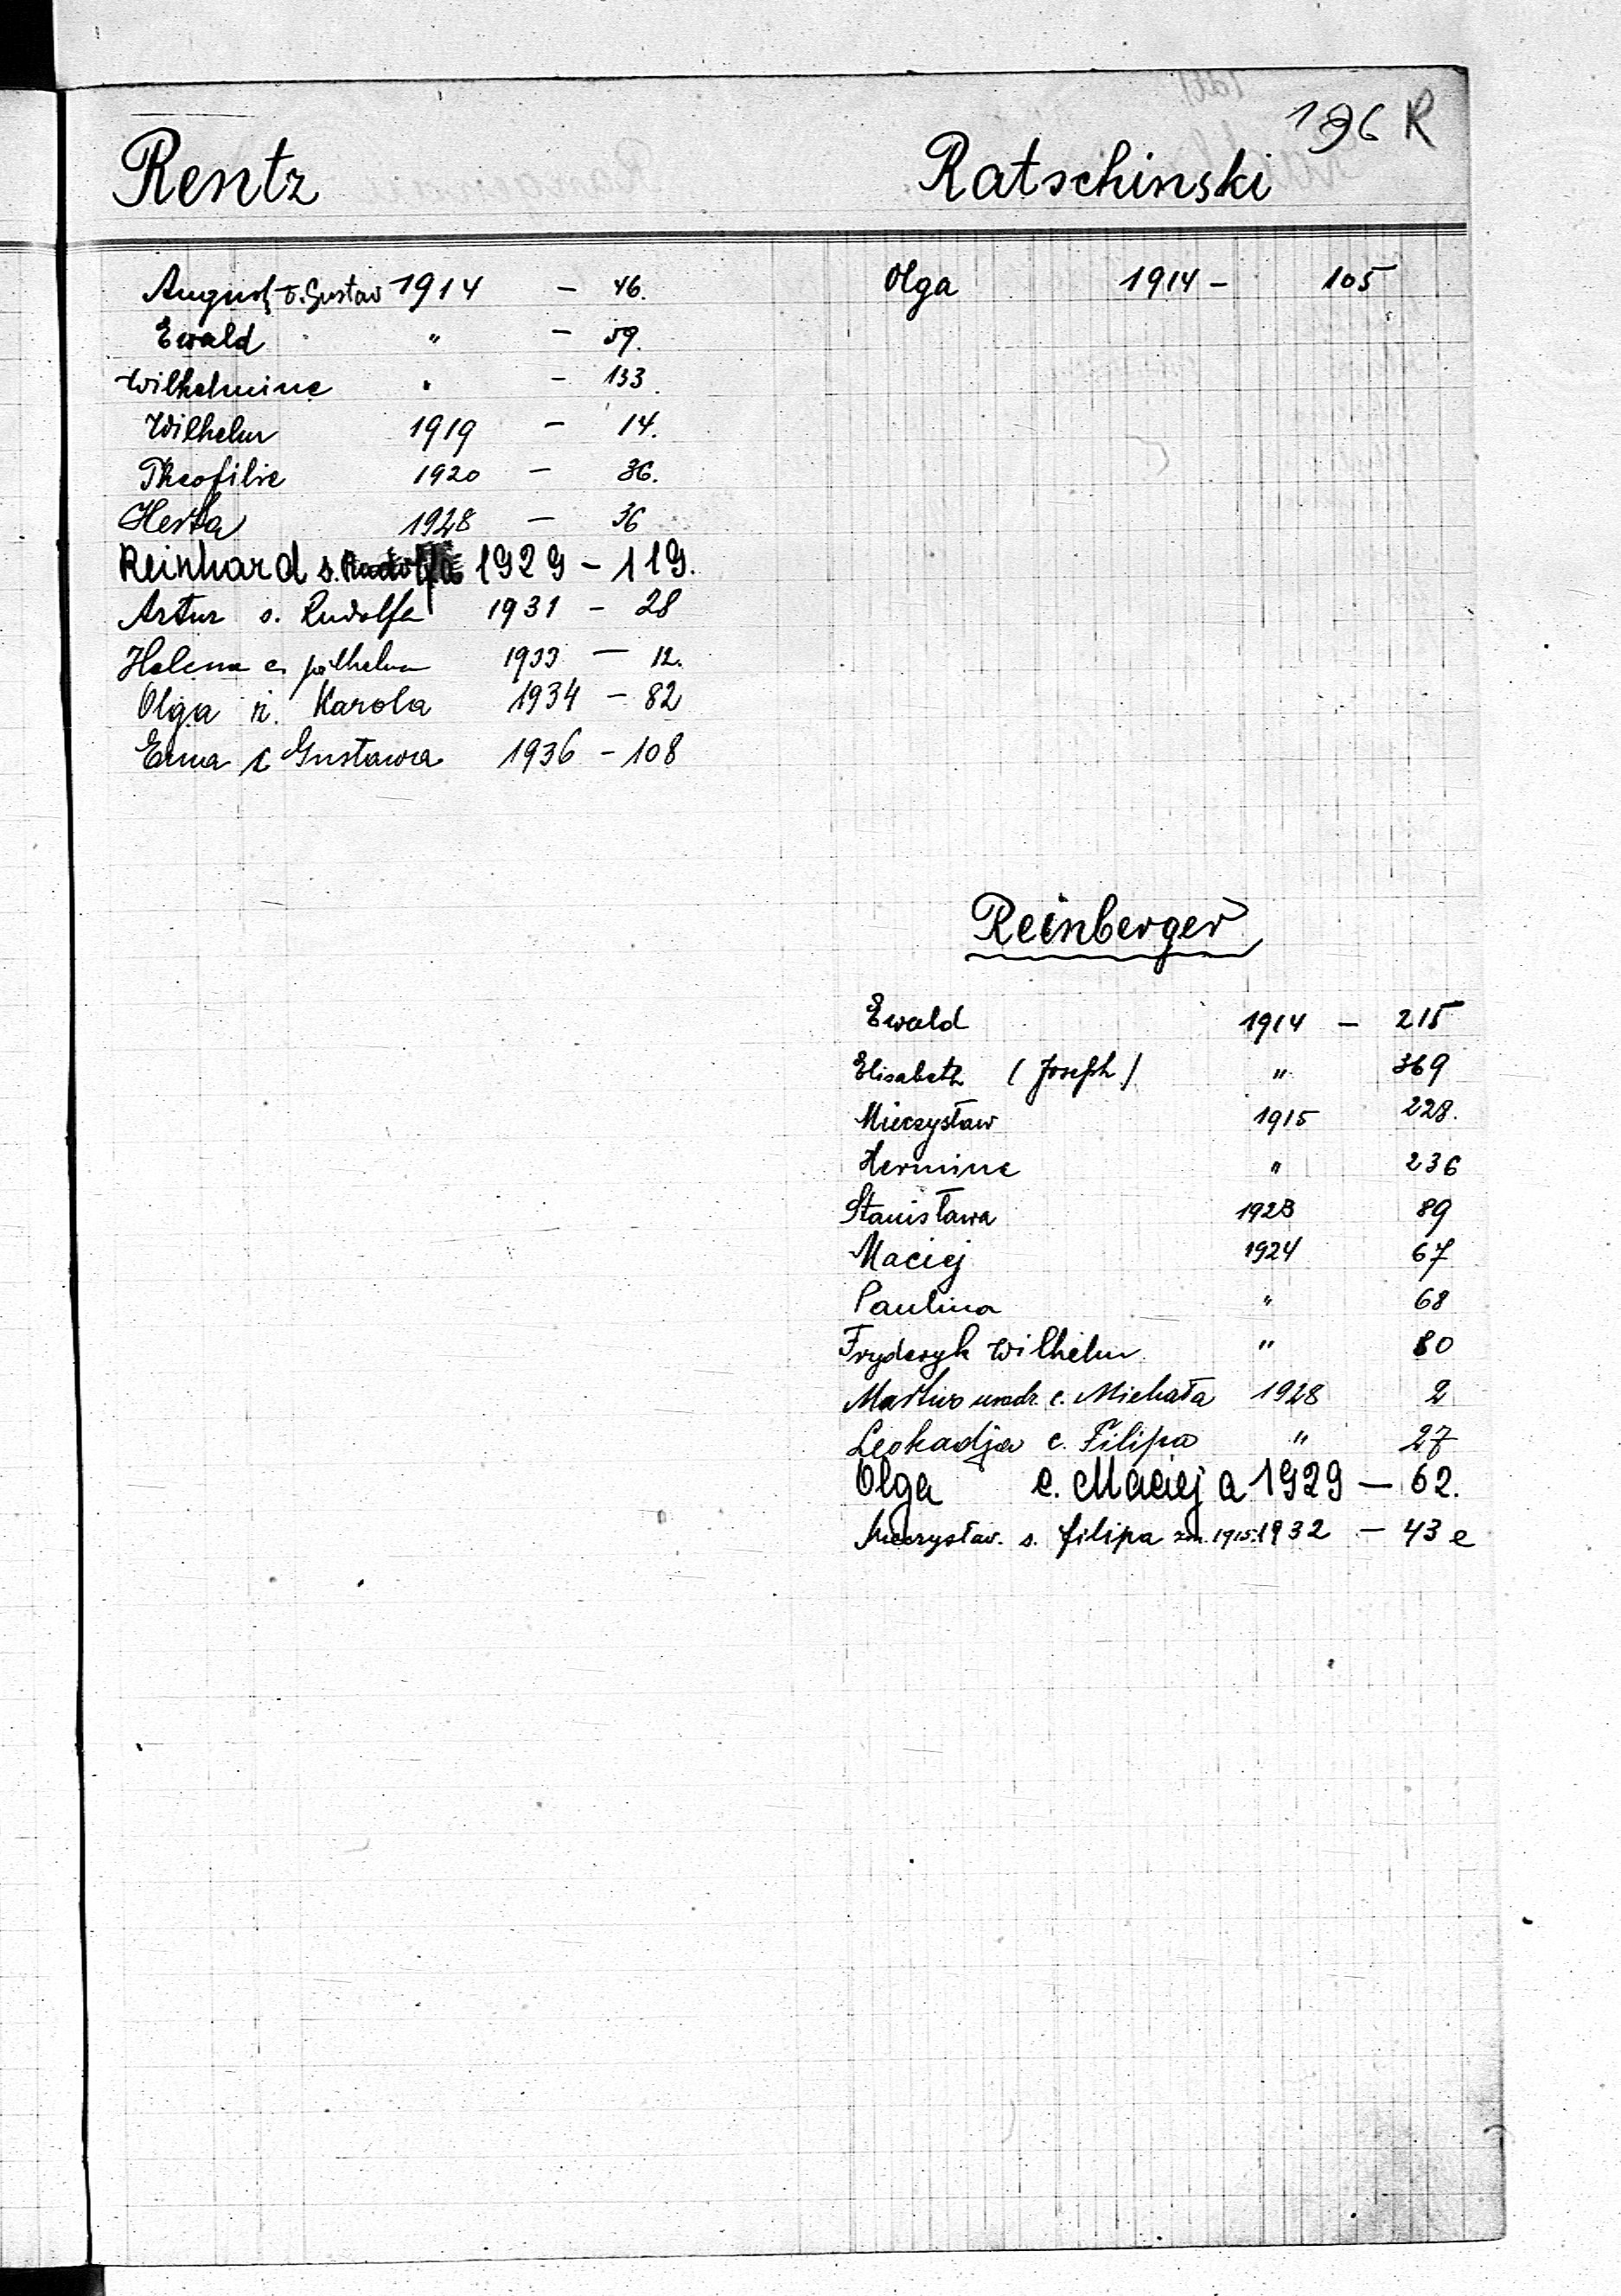 196 R
Rentz
August v. Gustav 1914 - 46.
Ewald " - 59.
Wilhelmine " - 133.
Wilhelm 1919 - 14.
Theofilie 1920 - 36.
Herta 1928 - 36
Reinhard s. Rudolfa 1929 - 119.
Artur s. Rudolfa 1931 - 28
Helena c. 1933 - 12.
Olga ż. Karola 1934 - 82
Erna c Gustawa 1936 - 108
Ratschinski
Olga 1914 - 105
Reinberger
Ewald 1914 - 215
Elisabeth (Joseph) " 369
Mieczysław 1915 228.
Hermine " 236
Stanisława 1923 89
Maciej 1924 67
Paulina " 68
Fryderyk Wilhelm " 80
c. Michała 1928 2
Leokadja c. Filipa " 27
Olga c. Macieja 1929 - 62.
Mieczysław. s. Filipa zm. 1915. 1932 - 43 e